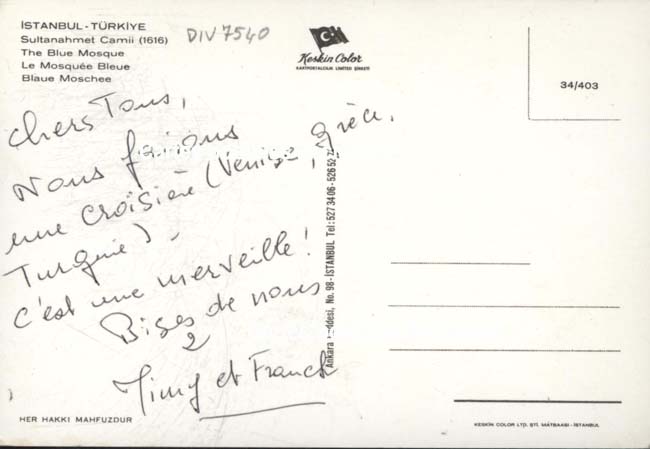 İSTANBUL - TÜRKİYE
Sultanahmet Camii (1616)
The Blue Mosque
Le Mosquée Bleue
Blaue Moschee
DIV 7540
Keskin Color
KARTPOSTALCILIK LIMITED ŞİRKETİ
34/403
Chers Tous,
Nous faisons
une croisière (Venise, Grèce,
Turquie).
C'est une merveille!
Bises de nous
2
et Franck
Ankara Caddesi, No. 98 - İSTANBUL Tel: 527 34 06 - 526 52 2
HER HAKKI MAHFUZDUR
KESKIN COLOR LTD. ŞTİ. MATBAASI - İSTANBUL